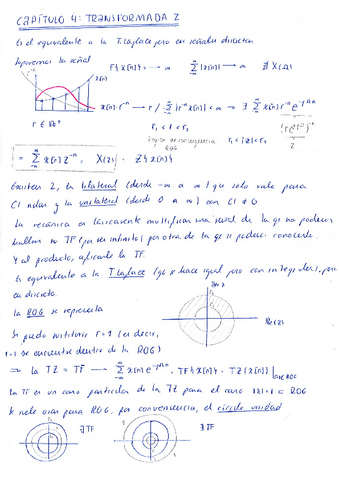 CAPÍTULO 4: TRANSFORMADA Z
Es el equivalente a la T. Laplace pero en señales discretas
Supongamos la señal F{x[n]} → ∞ Σ |x[n]| → ∞ ∄ X(Ω)
x[n]
x[n]·r⁻ⁿ → r / Σ |r⁻ⁿ x[n]| < ∞ → ∃ Σ x[n] r⁻ⁿ e^(-jΩn)
r ∈ ℝ⁺ r₁ < r < r₂ r₁ < |z| < r₂
Región de convergencia
ROC
= Σ x[n] z⁻ⁿ = X(z) = Z{x[n]}
Existen 2, la bilateral (desde -∞ a ∞) que solo vale para
CI nulas y la unilateral (desde 0 a ∞) con CI ≠ 0
La mecánica es básicamente multiplicar una señal de la que no podemos
hallar su TF (por ser infinito) por otra de la que sí podemos conocerla.
Y al producto, aplicarle la TF.
Es equivalente a la T Laplace (que se hace igual pero con integrales), pero
en discreto.
La ROC se representa
Im z
Re(z)
Si puedo sustituir r=1 (es decir,
r=1 se encuentra dentro de la ROC)
⇒ la TZ = TF → Σ x[n] e^(-jΩn) = TF{x[n]} = TZ{x[n]}|
La TF es un caso particular de la TZ para el caso |z|=1 ∈ ROC
Se suele usar para ROC, por conveniencia, el círculo unidad
∃ TF
∄ TF